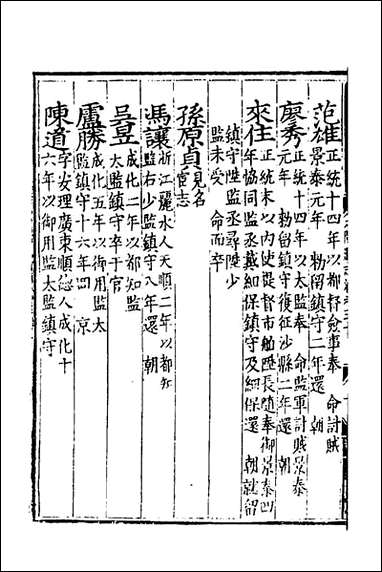 范雄正統十四年以都督僉事奉　命討賊
景泰元年　勑留鎮守二年還　朝
廖秀正統十四年以太監奉　命監軍討賊景泰
元年　勑留鎮守復征沙縣二年還　朝
來住正統末以内使提督市舶陞長隨奉御景泰四
年協同監丞戴細保鎮守及細保還　朝就留
鎮守陞監丞尋陞少
監未受　命而卒
孫原貞見名
宦志
馮讓浙江麗水人天順二年以都知
監右少監鎮守八年還　朝
呂昱成化二年以都知監
太監鎮守卒于官
盧勝成化五年以御用監太
監鎮守十六年回　京
陳道字安理廣東順德人成化十
六年以御用監太監鎮守